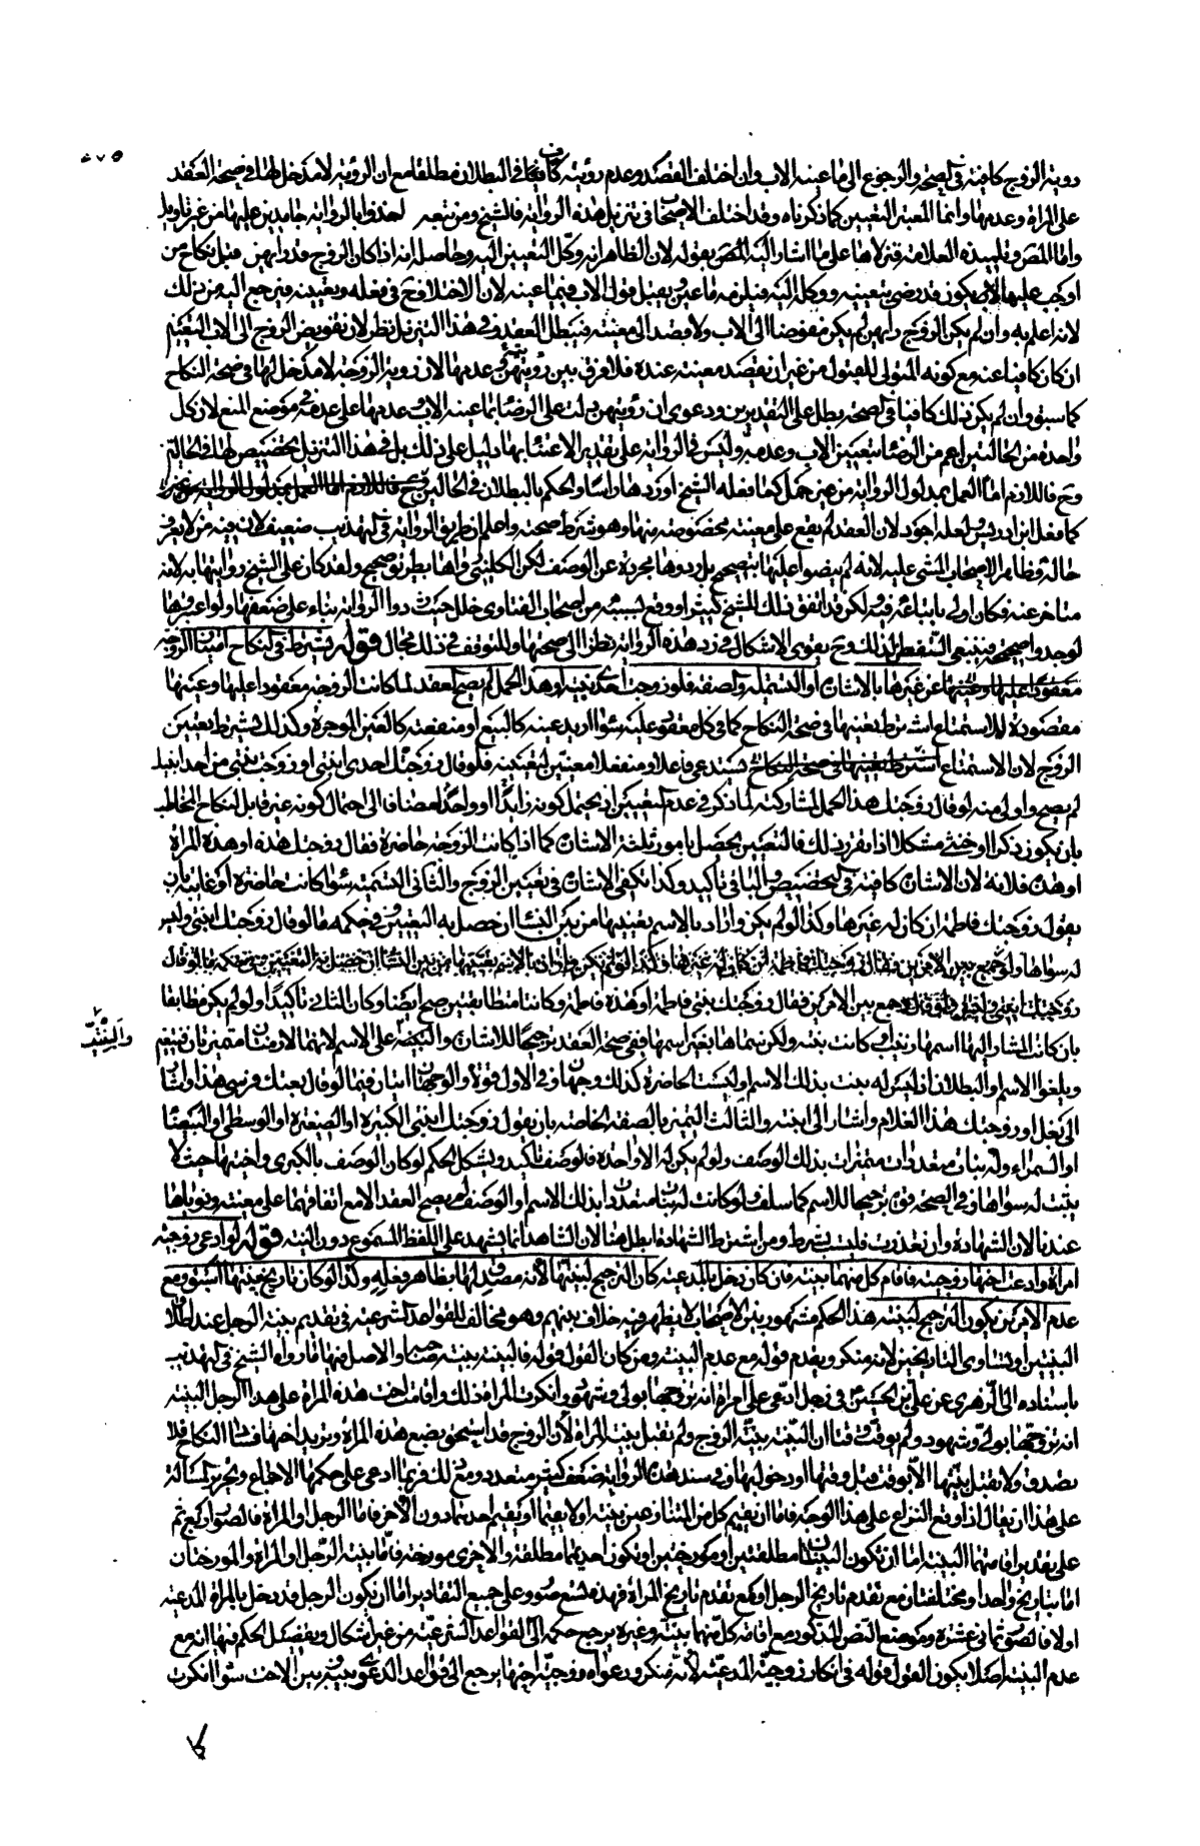 ٥٧٥
روية الزوج كافية في الصحة والرجوع الى ما عينه الاب وان اختلف القصد وعدم رويته كافيا في البطلان مطلقا مع ان الروية لا مدخل لها في صحة العقد
على المراة وعدمها وانما المعتبر التعيين كما ذكرناه وقد اختلف الاصحاب في تنزيل هذه الرواية فالشيخ ومن تبعه اخذوا بالرواية جامدين عليها من غير تاويل
واما المص وتلميذه العلامة فنزلاها على ما اشار اليه المص بقوله لان الظاهر انه وكل التعيين اليه وحاصله انه اذا كان الزوج قد راهن فقبل نكاح من
اوجب عليها الاب يكون قد رضي بتعيينه ووكله اليه فيلزمه ما عين ويقبل قول الاب فيما عينه لان الاختلاف ح في فعله وتعيينه فيرجع اليه من ذلك
لانه اعلم به وان لم يكن الزوج راهن لم يكن مفوضا الى الاب ولا قصد الى معينة فيبطل العقد وفي هذا التنزيل نظر لان تفويض الزوج الى الاب التعيين
ان كان كافيا عنه مع كونه المتولي للقبول من غير ان يقصد معينة عنده فلا فرق بين رؤيتهن وعدمها لان روية الزوجة لا مدخل لها في صحة النكاح
كما سبق وان لم يكن ذلك كافيا في الصحة بطل على التقديرين ودعوى ان رؤيتهن دلت على الرضا بما عينه الاب وعدمها على عدمه في موضع المنع لان كل
واحدة من الحالتين اعم من الرضا بتعيين الاب وعدمه وليس في الرواية على تقدير الاعتناء بها دليل على ذلك بل في هذا التنزيل تخصيص لها في الحالتين
وح فاللازم اما العمل بمدلول الرواية من غير حمل كما فعله الشيخ او ردها راسا والحكم بالبطلان في الحالين
كما فعل ابن ادريس ولعله اجود لان العقد لم يقع على معينة مخصوصة منها وهو شرط صحته واعلم ان طريق الرواية في التهذيب ضعيف لان فيه من لا يعرف
حاله وظاهر الاصحاب المشي عليه لانه لم يصفوا عليها بتصحيح بل ردوها مجردة عن الوصف لكن الكليني رواها بطريق صحيح ولقد كان على الشيخ روايتها به لانه
متاخر عنه فكان اولى باتباعه فيه ولكن قد اتفق ذلك للشيخ كثيرا ووقع بسببه من اصحاب الفتاوى خلل حيث ردوا الرواية بناء على ضعفها ولو اعتبروها
لوجدوا صحيحة فينبغي التفطن لذلك وح يقوى الاشكال في رد هذه الرواية نظرا الى صحتها وللتوقف في ذلك مجال قوله يشترط في النكاح امتياز الزوجة
عن غيرها بالاشارة او التسمية او الصفة فلو زوجه احدى بنتيه او هذا الحمل لم يصح العقد لما كانت الزوجة معقودا عليها وعينها
مقصودة للاستمتاع اشترط تعيينها في صحة النكاح كما في كل معقود عليه سواء اريد عينه كالبيع او منفعته كالعين الموجرة وكذلك يشترط تعيين
الزوج لان الاستمتاع يستدعي فاعلا ومنفعلا معينين لتعيينه فلو قال زوجتك احدى ابنتي او زوجت بنتي من احد ابنيك
لم يصح واولى منه لو قال زوجتك هذا الحمل لمشاركته لما ذكر في عدم التعيين اذ يحتمل كونه زايدا او واحدا مضافا الى احتمال كونه غير قابل لنكاح المخاطب
بان يكون ذكرا او خنثى مشكلا اذا تقرر ذلك فالتعيين يحصل بامور ثلثة الاشارة كما اذا كانت الزوجة حاضرة فقال زوجتك هذه او هذه المراة
او هذه فلانة لان الاشارة كافية في التخصيص والباقي تاكيد وكذا تكفي الاشارة في تعيين الزوج والثاني التسمية سواء كانت حاضرة او غايبة بان
يقول زوجتك فاطمة ان كان له غيرها وكذا لو لم يكن واراد بالاسم تعيينها من بين النساء ان حصل به التعيين وفي حكمه ما لو قال زوجتك ابنتي وليس
له سواها ولو جمع بين الامرين فقال
زوجتك بنتي فاطمة او هذه فاطمة وكانتا متطابقتين صح ايضا وكان الثاني تاكيدا ولو لم يكن مطابقا
بان كانت المشار اليها اسمها زينب او كانت بنته ولكن سماها بغير اسمها ففي صحة العقد ترجيحا للاشارة والبنتية على الاسم لانهما لازمتان متميزتان فتتعين
ويلغو الاسم او البطلان اذ ليس له بنت بذلك الاسم او ليست الحاضرة كذلك وجهان وفي الاول قوة والوجهان اتيان فيما لو قال بعتك فرسي هذا واشار
الى بغل او زوجتك هذا الغلام واشار الى ابنته والثالث التميز بالصفة الخاصة بان يقول زوجتك ابنتي الكبيرة او الصغيرة او الوسطى او البيضاء
او السمراء وله بنات متعددات متميزات بذلك الوصف ولو لم يكن له الا واحدة فالوصف تاكيد ويشكل الحكم لو كان الوصف بالكبرى واختها حيث لا
يثبت له سواها وفي الصحة قوة ترجيحا للاسم كما سلف ولو كانت له بنات متعددات بذلك الاسم او الوصف لم يصح العقد الا مع اتفاقهما على معينة ونوياها
عندنا لان الشهادة وان تعذرت فليست بشرط ومن اشترط الشهادة ابطل هنا لان الشاهد انما يشهد على اللفظ المسموع دون النية قوله لو ادعى زوجية
امراة وادعت اختها زوجيته فاقام كل منهما بينة فان كان دخل بالمدعية كان الترجيح لبينتها لانه مصدق لها بظاهر فعله وكذا لو كان تاريخ بينتها اسبق ومع
عدم الامرين يكون الترجيح لبينته هذا الحكم مشهور بين الاصحاب لا يظهر فيه خلاف بينهم وهو مخالف للقواعد الشرعية في تقديم بينة الرجل عند اطلاق
البينتين او تساوي التاريخين لانه منكر ويقدم قوله مع عدم البينة ومن كان القول قوله فالبينة بينة صاحبه والاصل فيها ما رواه الشيخ في التهذيب
باسناده الى الزهري عن علي بن الحسين في رجل ادعى على امراة انه تزوجها بولي وشهود وانكرت المراة ذلك واقامت اخت هذه المراة على هذا الرجل البينة
انه تزوجها بولي وشهود ولم يوقت وقتا ان البينة بينة الزوج ولم تقبل بينة المراة لان الزوج قد استحق بضع هذه المراة وتريد اختها فساد النكاح فلا
تصدق ولا تقبل بينتها الا بوقت قبل وقتها او دخول بها وفي سند هذه الرواية ضعف كثير متعدد ومع ذلك فربما ادعي على حكمها الاجماع وتحرير المسالة
على هذا ان يقال اذا وقع النزاع على هذا الوجه فاما ان يقيم كل من المتنازعين بينة او لا يقيما او يقيم احدهما دون الاخر فاما الرجل او المراة فالصور اربع ثم
على تقدير اقامتهما البينة اما ان تكون البينتان مطلقتين او مورختين او تكون احدهما مطلقة والاخرى مورخة فاما بينة الرجل او المراة والمورختان
اما بتاريخ واحد او مختلفتان مع تقدم تاريخ الرجل او مع تقدم تاريخ المراة فهذه تسع صور وعلى جميع التقادير اما ان يكون الرجل قد دخل بالمراة المدعية
اولا فالصور ثماني عشرة وموضع النص المذكور مع اقامة كل منهما بينة وغيره يرجع حكمه الى القواعد الشرعية من غير اشكال وتفصيل الحكم فيها انه مع
عدم البينة اصلا يكون القول قوله في انكار زوجية المدعية لانه منكر ودعواه زوجية اختها يرجع الى قواعد الدعوى بينه وبين الاخت سواء انكرت